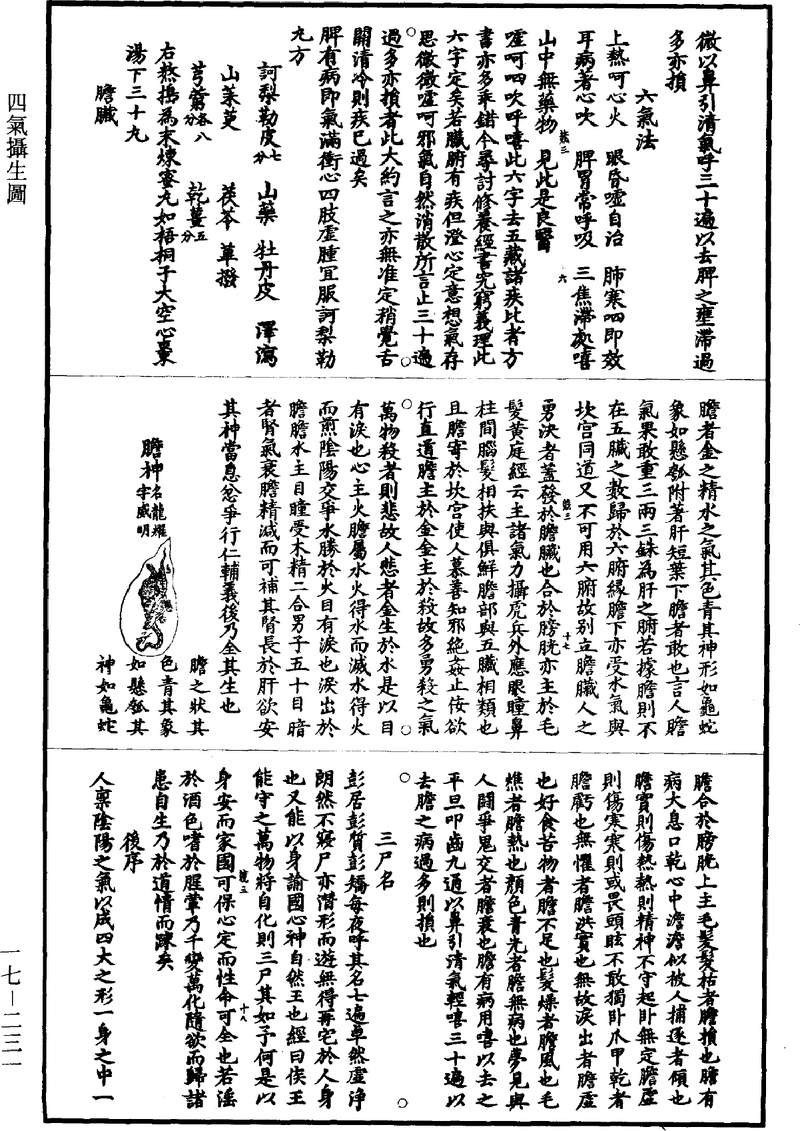 四氣攝生圖
微以鼻引清氣呼三十遍以去脾之壅滯過
多亦損
六氣法
上熱呵心火　眼昏噓自治　肺寒呬即效
耳病著心吹　脾胃當呼吸　三焦滯處嘻
山中無藥物　見此是良醫
噓呵呬吹呼嘻此六字去五藏諸疾比者方
書亦多乖錯今尋討修養經書究窮義理此
六字定矣若臟腑有疾但澄心定意想氣存
思微微噓呵邪氣自然消散所言止三十遍
過多亦損者此大約言之亦無准定稍覺舌
關清冷則疾已過矣
脾有病即氣滿衝心四肢虛腫宜服訶梨勒
丸方
訶梨勒皮七分　山藥　牡丹皮　澤瀉
山茱萸　茯苓　蓽撥
芎藭各八分　乾薑五分
右熬搗為末煉蜜丸如梧桐子大空心棗
湯下三十丸
膽臟
膽者金之精水之氣其色青其神形如龜蛇
象如懸瓠附著肝短葉下膽者敢也言人膽
氣果敢重三兩三銖為肝之腑若據膽則不
在五臟之數歸於六腑緣膽下亦受水氣與
坎宮同道又不可用六腑故別立膽臟人之
勇決者蓋發於膽臟也合於膀胱亦主於毛
髮黃庭經云主諸氣力攝虎兵外應眼瞳鼻
柱間腦髮相扶與俱鮮膽部與五臟相類也
且膽寄於坎宮使人慕善知邪絕姦止佞欲
行直道膽主於金金主於殺故多勇殺之氣
萬物殺者則悲故人悲者金生於水是以目
有淚也心主火膽屬水火得水而滅水得火
而煎陰陽交爭水勝於火目有淚也淚出於
膽膽水主目瞳受木精二合男子五十目暗
者腎氣衰膽精減而可補其腎長於肝欲安
其神當息忿爭行仁輔義後乃全其生也
膽神名龍耀字威明
膽之狀其
色青其象
如懸瓠其
神如龜蛇
膽合於膀胱上主毛髮髮枯者膽損也膽有
病大息口乾心中澹澹似被人捕逐者傾也
膽實則傷熱熱則精神不守起臥無定膽虛
則傷寒寒則或畏頭眩不敢獨臥爪甲乾者
膽虧也無懼者膽洪實也無故淚出者膽虛
也好食苦物者膽不足也髮燥者膽風也毛
燋者膽熱也顏色青光者膽無病也夢見與
人鬭爭鬼交者膽衰也膽有病用嘻以去之
平旦叩齒九通以鼻引清氣輕嘻三十遍以
去膽之病過多則損也
三尸名
彭居彭質彭矯每夜呼其名七遍卓然虛淨
朗然不寢尸亦潛形而遊無得再宅於人身
也又能以身諭國心神自然王也經曰侯王
能守之萬物將自化則三尸其如予何是以
身安而家國可保心定而性命可全也若淫
於酒色嗜於腥葷乃千變萬化隨欲而歸諸
患自生乃於道情而踈矣
後序
人稟陰陽之氣以成四大之形一身之中一
一七—二三一